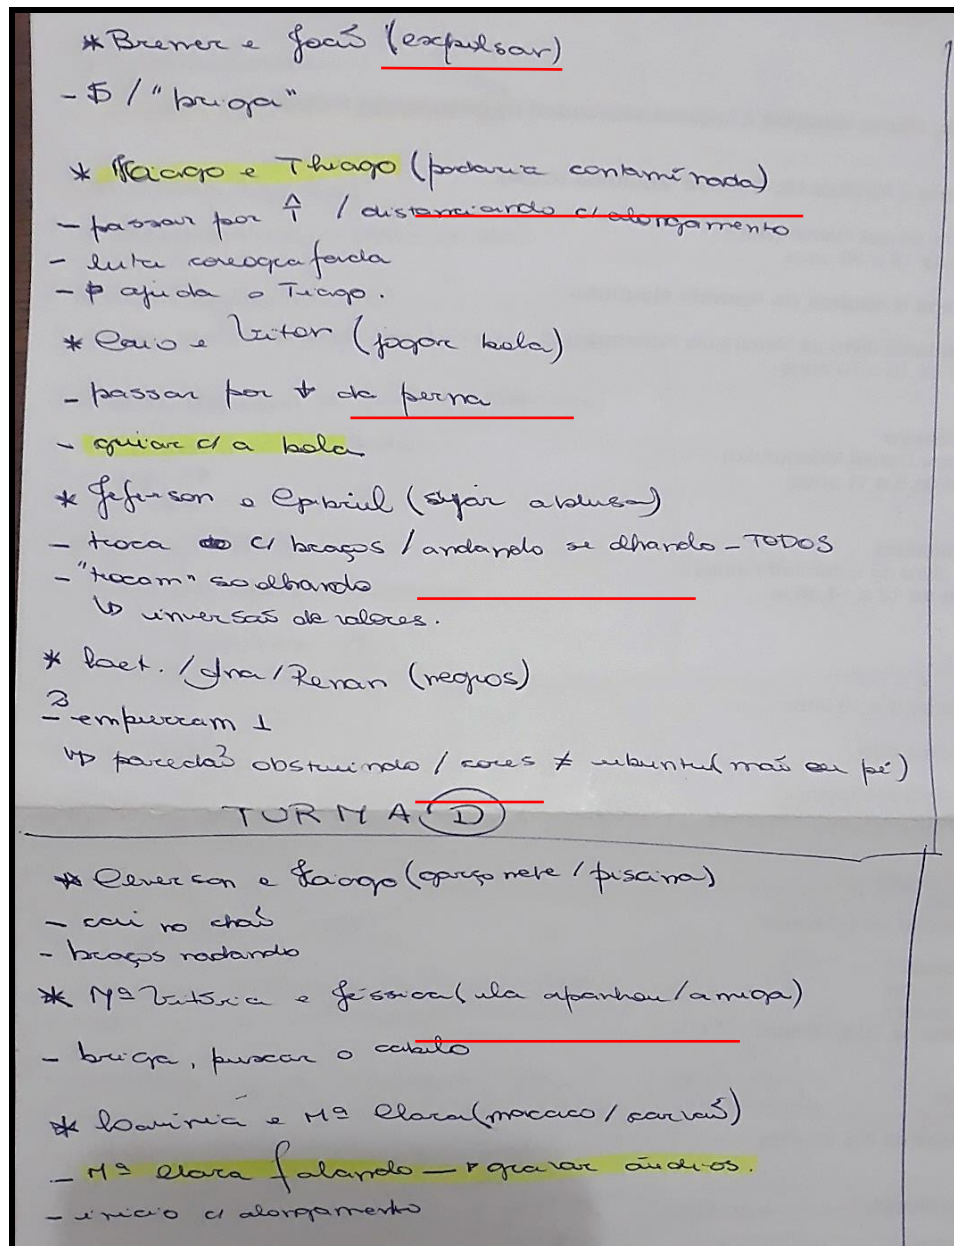 * Brener e João (expulsar)
- $ / "briga"
* Tiago e Thiago (padaria contaminada)
- passar por / distanciando c/ alongamento
- luta coreografada
- ajuda o Tiago.
* Caio e Vitor (jogar bola)
- passar por ↓ da perna
- guiar c/ a bola
* Jeferson e Gabriel (sujar a blusa)
- troca c/ braços / andando se olhando - TODOS
- "trocam" se olhando
↳ inversão de valores.
* Kaet. / Ana / Renan (negros)
- 2 empurram 1
↳ paredão obstruindo / cores ≠ ubuntu (mão ou pé)
TURMA D
* Cleverson e Tiago (garçonete / piscina)
- cai no chão
- braços rodando
* Mª Vitória e Jéssica (ela apanhou / amiga)
- briga, puxar o cabelo
* Lavínia e Mª Clara (macaco / carvão)
- Mª Clara falando → gravar áudios.
- início c/ alongamento